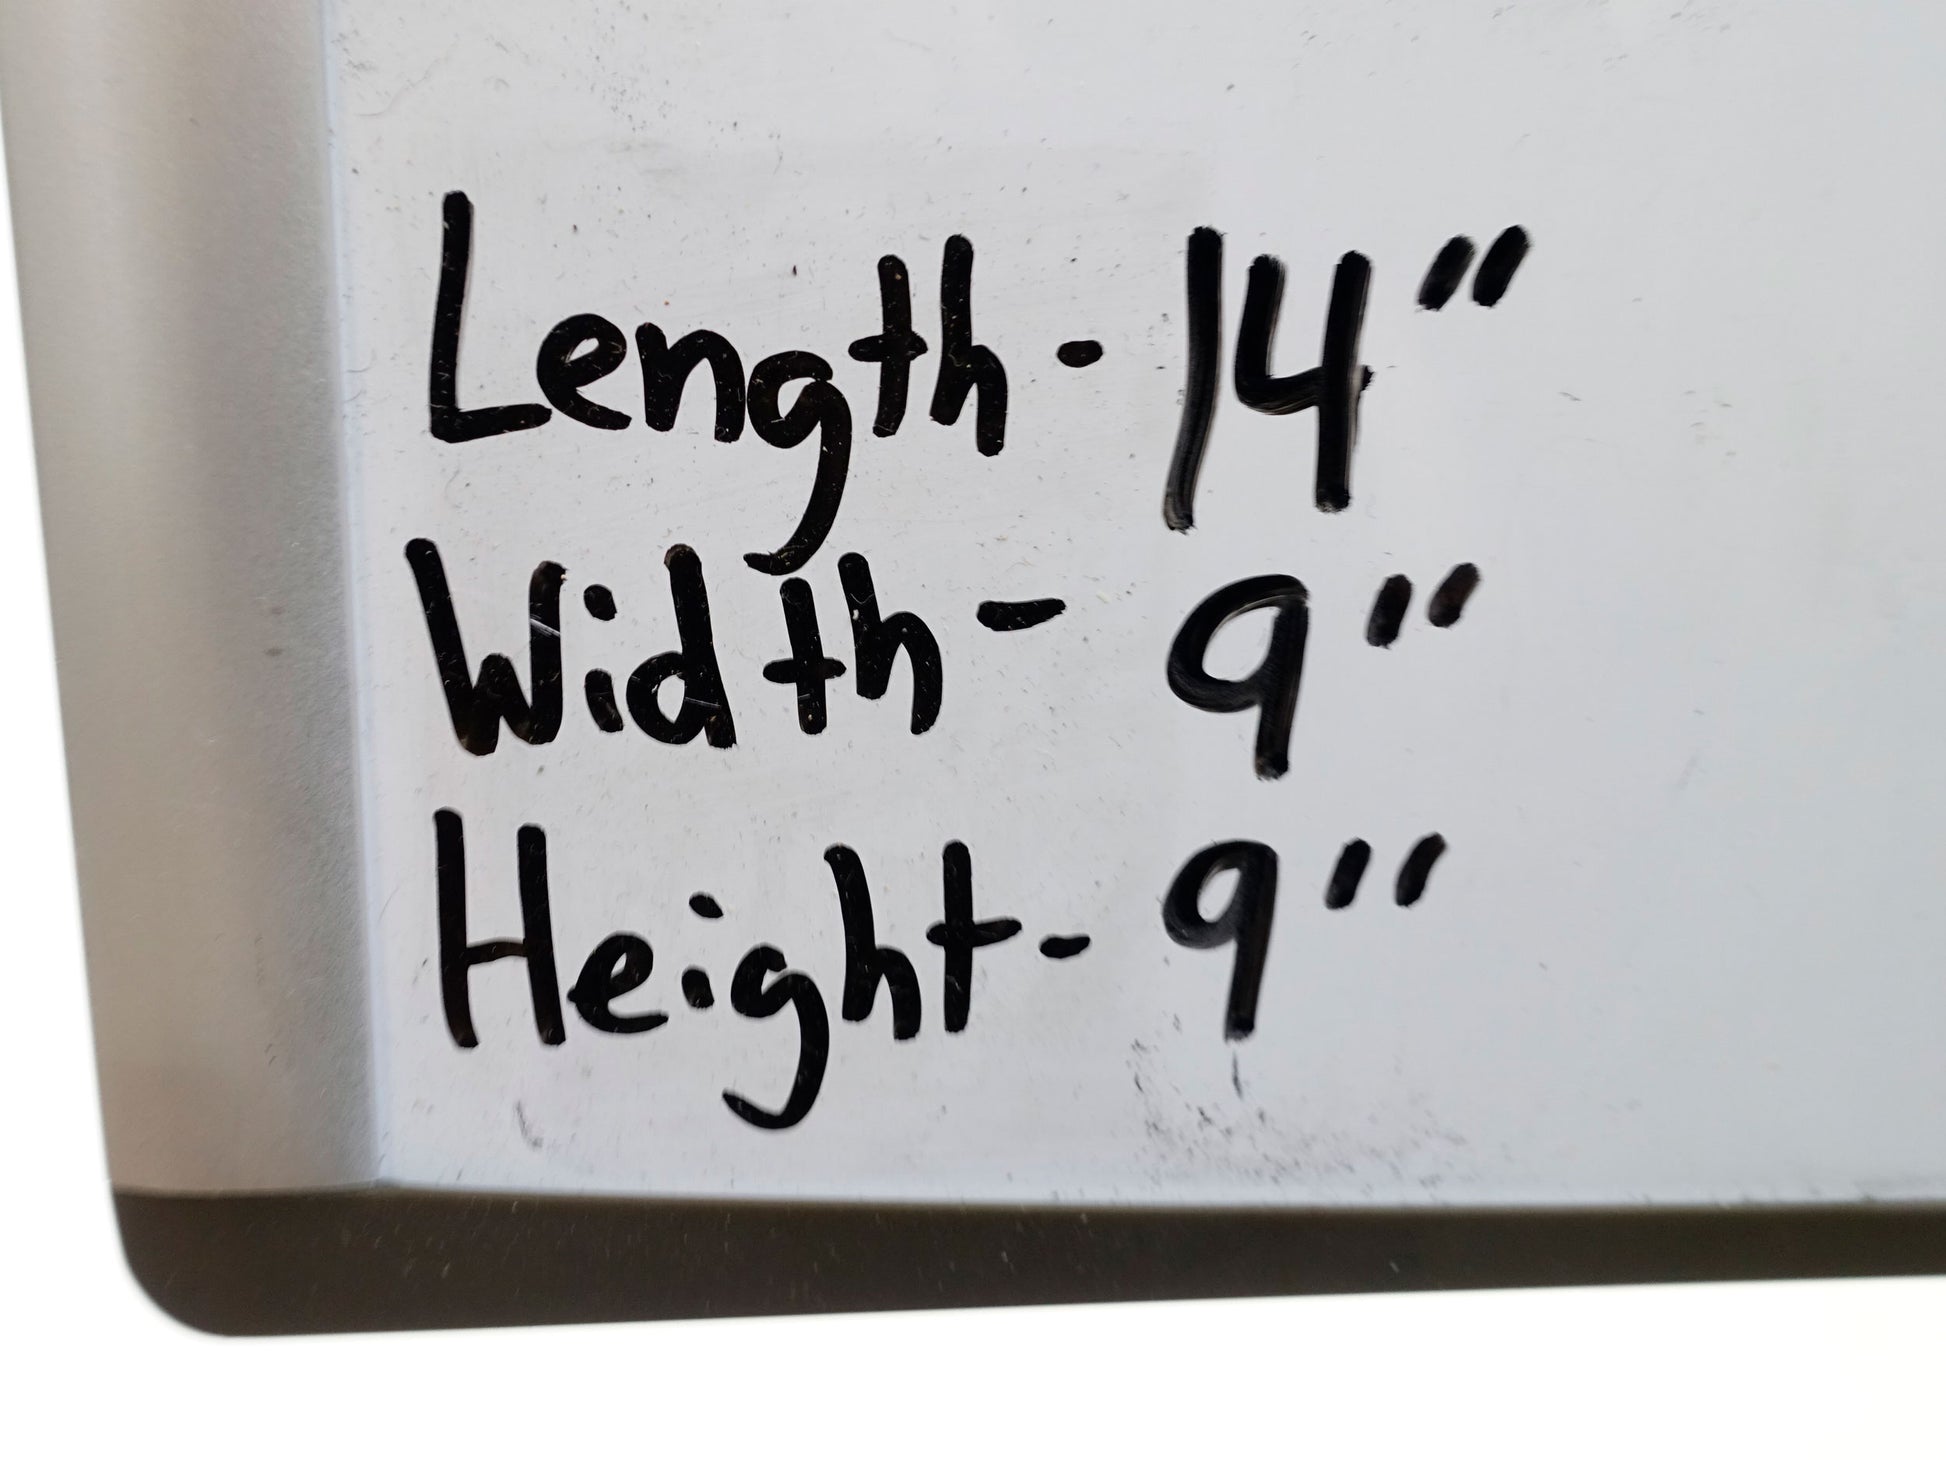 Length - 14"
Width - 9"
Height - 9"